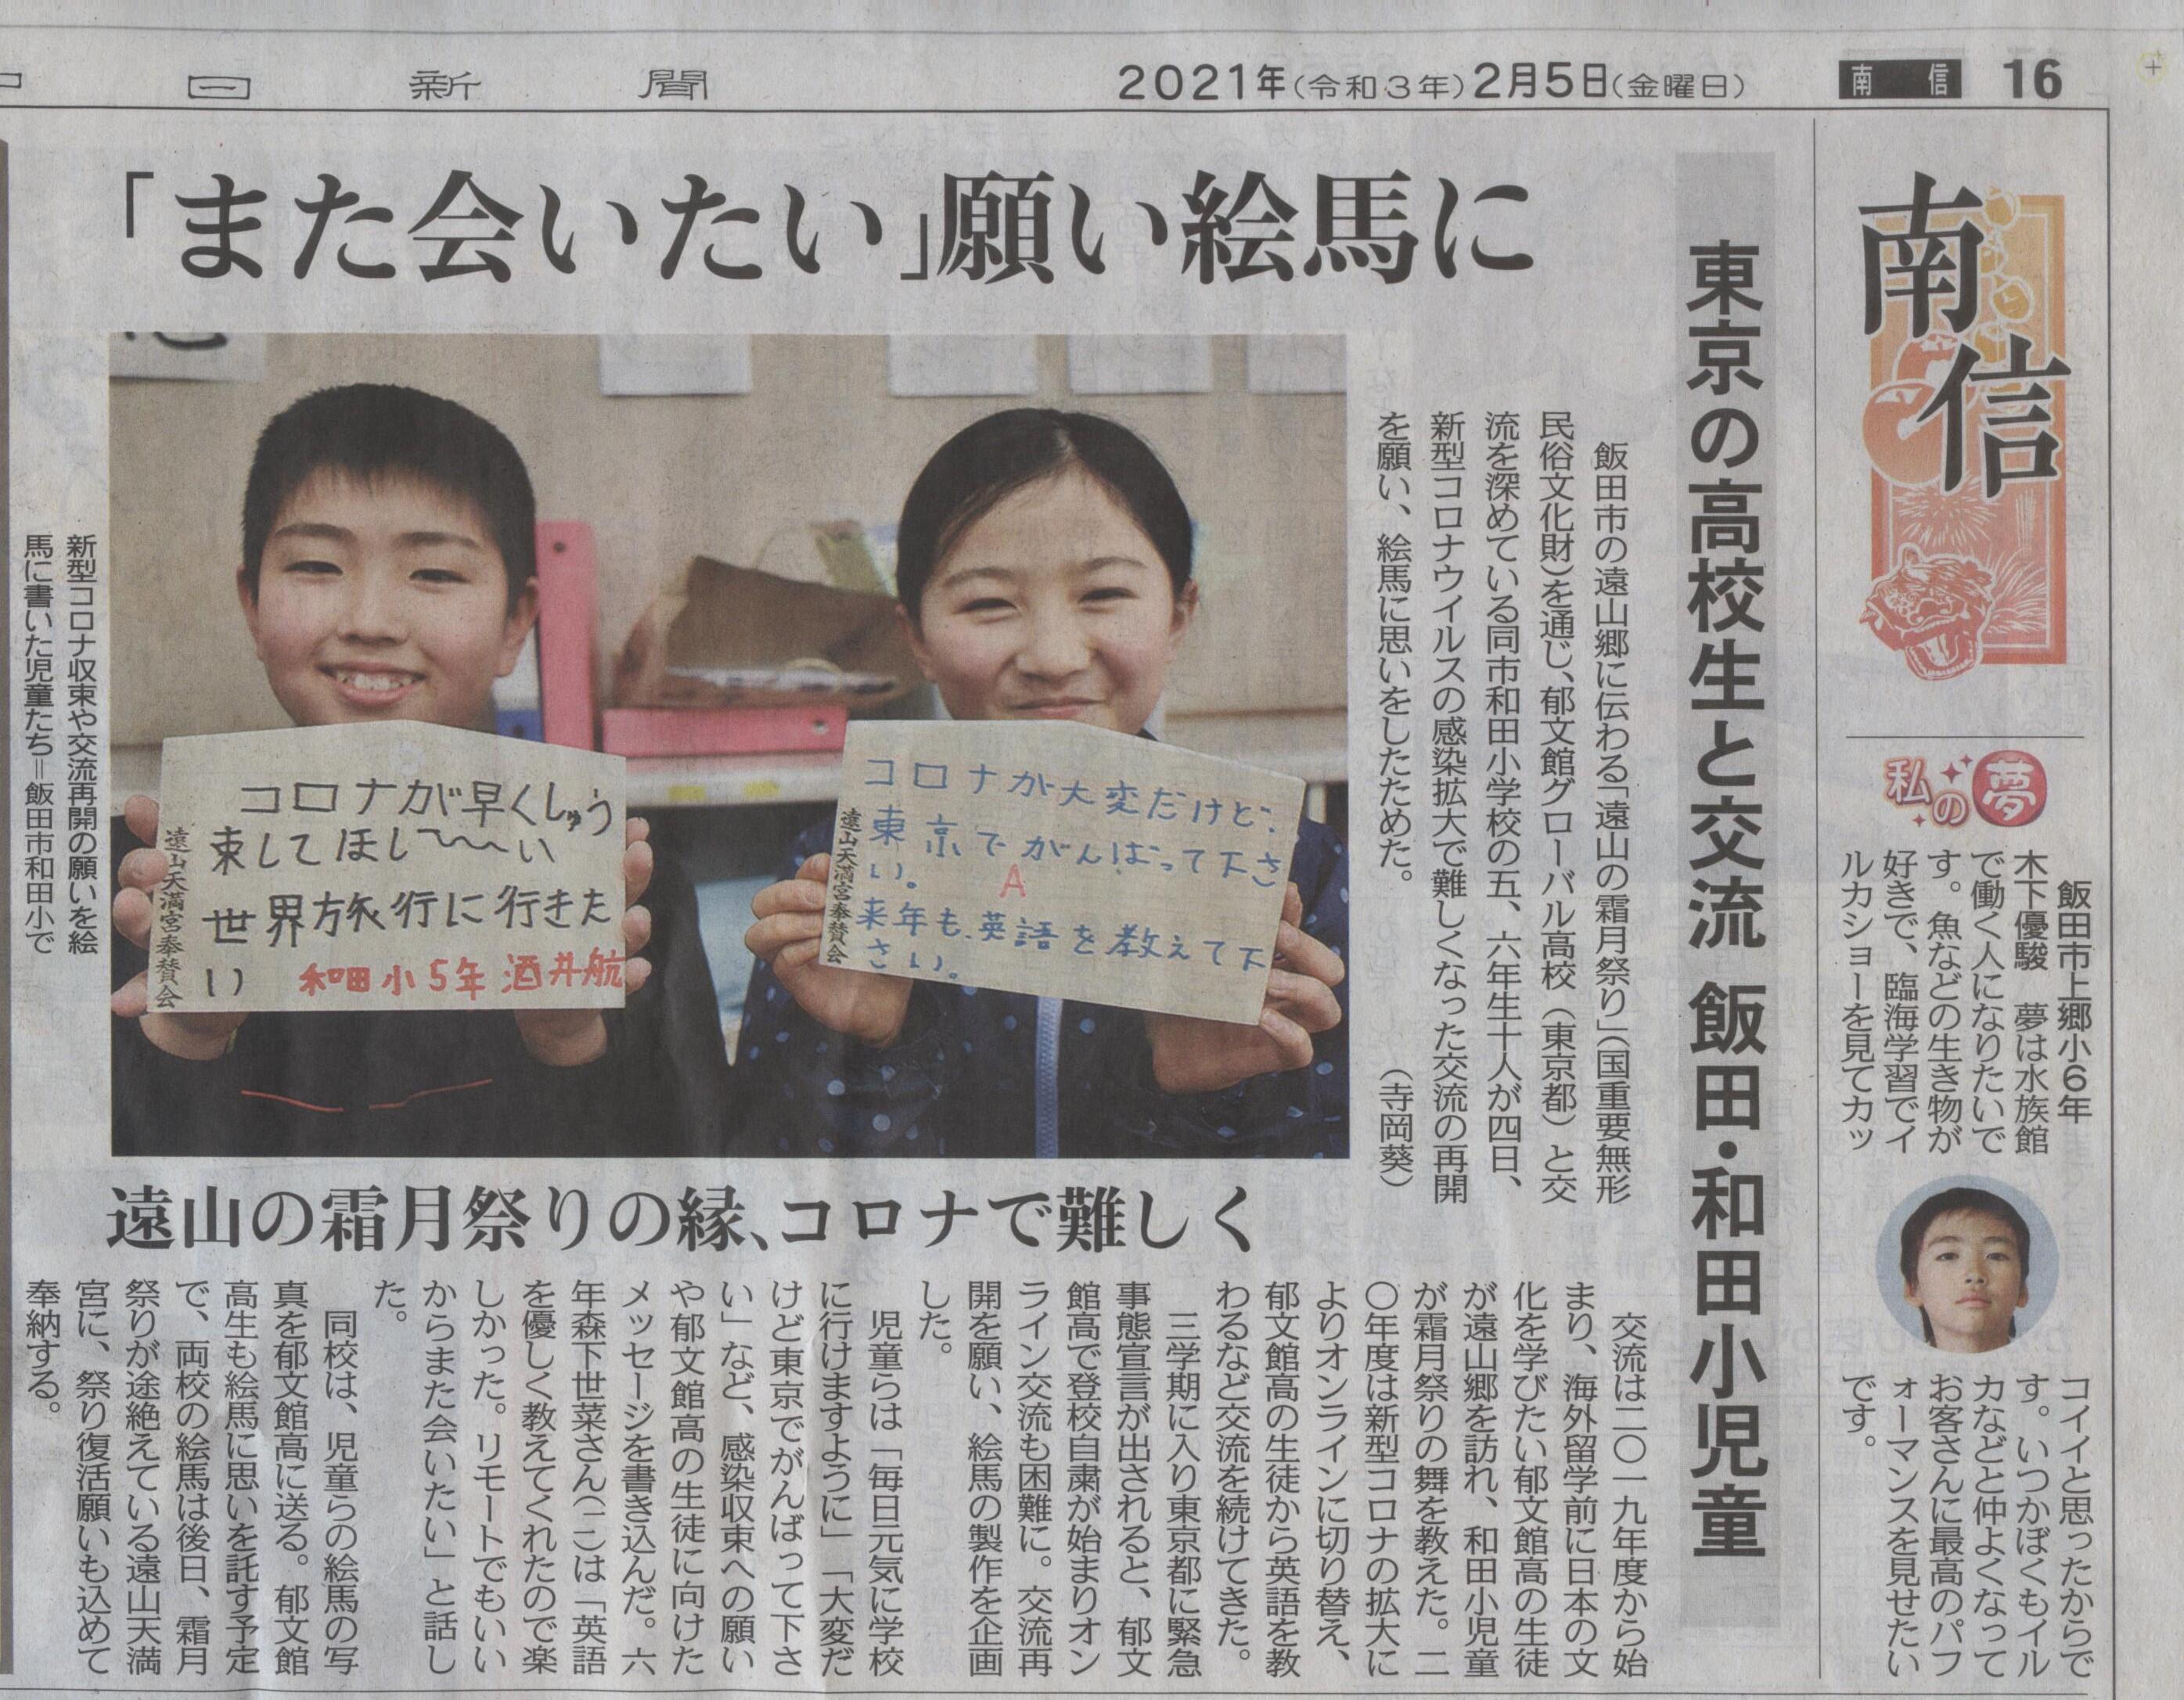 日新聞
2021年(令和3年)2月5日(金曜日)
南信
16
南信
「また会いたい」願い絵馬に
東京の高校生と交流 飯田・和田小児童
飯田市の遠山郷に伝わる「遠山の霜月祭り」(国重要無形
民俗文化財)を通じ、郁文館グローバル高校(東京都)と交
流を深めている同市和田小学校の五、六年生十人が四日、
新型コロナウイルスの感染拡大で難しくなった交流の再開
を願い、絵馬に思いをしたためた。
(寺岡葵)
コロナが早くしゅう
束してほし〜〜い
世界旅行に行きた
い
和田小5年 酒井航
遠山天満宮奉賛会
コロナが大変だけど、
東京でがんばって下さ
い。
A
来年も英語を教えて下
さい。
遠山天満宮奉賛会
新型コロナ収束や交流再開の願いを絵
馬に書いた児童たち＝飯田市和田小で
遠山の霜月祭りの縁、コロナで難しく
交流は二〇一九年度から始
まり、海外留学前に日本の文
化を学びたい郁文館高の生徒
が遠山郷を訪れ、和田小児童
が霜月祭りの舞を教えた。二
〇年度は新型コロナの拡大に
よりオンラインに切り替え、
郁文館高の生徒から英語を教
わるなど交流を続けてきた。
三学期に入り東京都に緊急
事態宣言が出されると、郁文
館高で登校自粛が始まりオン
ライン交流も困難に。交流再
開を願い、絵馬の製作を企画
した。
児童らは「毎日元気に学校
に行けますように」「大変だ
けど東京でがんばって下さ
い」など、感染収束への願い
や郁文館高の生徒に向けた
メッセージを書き込んだ。六
年森下世菜さん(一二)は「英語
を優しく教えてくれたので楽
しかった。リモートでもいい
からまた会いたい」と話し
た。
同校は、児童らの絵馬の写
真を郁文館高に送る。郁文館
高生も絵馬に思いを託す予定
で、両校の絵馬は後日、霜月
祭りが途絶えている遠山天満
宮に、祭り復活願いも込めて
奉納する。
私の夢
飯田市上郷小6年
木下優駿 夢は水族館
で働く人になりたいで
す。魚などの生き物が
好きで、臨海学習でイ
ルカショーを見てカッ
コイイと思ったからで
す。いつかぼくもイル
カなどと仲よくなって
お客さんに最高のパフ
ォーマンスを見せたい
です。